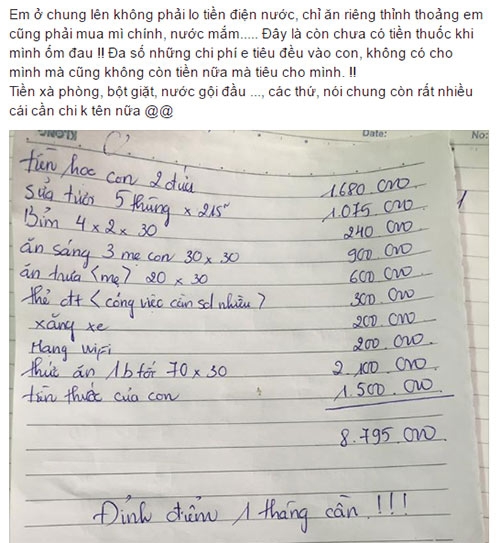 Em ở chung lên không phải lo tiền điện nước, chỉ ăn riêng thỉnh thoảng em
cũng phải mua mì chính, nước mắm..... Đây là còn chưa có tiền thuốc khi
mình ốm đau !! Đa số những chi phí e tiêu đều vào con, không có cho
mình mà cũng không còn tiền nữa mà tiêu cho mình. !!
Tiền xà phòng, bột giặt, nước gội đầu ..., các thứ, nói chung còn rất nhiều
cái cần chi k tên nữa @@
KLONG Date: No:
tiền học con 2 đứa 1680.000
sữa tươi 5 thùng x 215 1.075.000
Bỉm 4 x 2 x 30 240.000
ăn sáng 3 mẹ con 30 x 30 900.000
ăn trưa (mẹ) 20 x 30 600.000
thẻ đt (công việc cần sd nhiều) 300.000
xăng xe 200.000
Mạng wifi 200.000
thức ăn 1b tối 70 x 30 2.100.000
tiền thuốc của con 1.500.000
8.795.000
Đỉnh điểm 1 tháng cần !!!